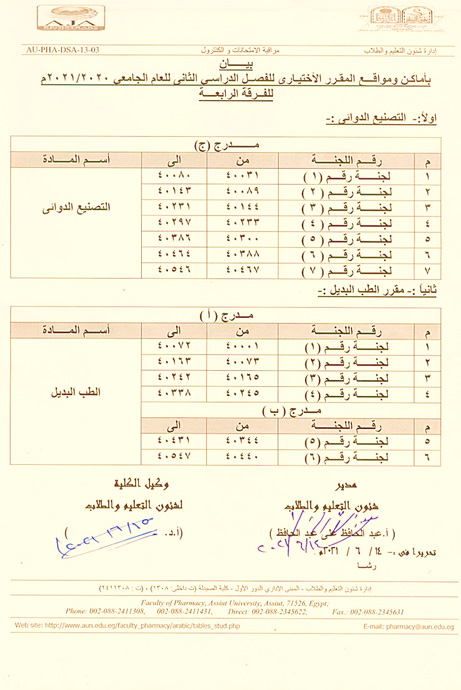 إدارة شئون التعليم والطلاب مراقبة الامتحانات و الكنترول AU-PHA-DSA-13-03
بيـــان
بأماكن ومواقع المقرر الأختيارى للفصل الدراسى الثانى للعام الجامعى ٢٠٢١/٢٠٢٠م
للفرقة الرابعـــة
اولاً:- التصنيع الدوائى :-
مـــدرج (ج)
م رقـم اللجنـــة من الى أسـم المـادة
١ لجنـــة رقـم (١) ٤٠٠٣١ ٤٠٠٨٠ التصنيع الدوائى
٢ لجنـــة رقـم (٢) ٤٠٠٨٩ ٤٠١٤٣
٣ لجنـــة رقـم (٣) ٤٠١٤٤ ٤٠٢٣١
٤ لجنـــة رقـم (٤) ٤٠٢٣٣ ٤٠٢٩٧
٥ لجنـــة رقـم (٥) ٤٠٣٠٠ ٤٠٣٨٦
٦ لجنـــة رقـم (٦) ٤٠٣٨٨ ٤٠٤٦٤
٧ لجنـــة رقـم (٧) ٤٠٤٦٧ ٤٠٥٤٦
ثانياً :- مقرر الطب البديل :-
مـــدرج (أ)
م رقـم اللجنـــة من الى أسـم المـادة
١ لجنـــة رقـم (١) ٤٠٠٠١ ٤٠٠٧٢ الطب البديل
٢ لجنـــة رقـم (٢) ٤٠٠٧٣ ٤٠١٦٣
٣ لجنـــة رقـم (٣) ٤٠١٦٥ ٤٠٢٤٢
٤ لجنـــة رقـم (٤) ٤٠٢٤٥ ٤٠٣٣٨
مـــدرج (ب)
٥ لجنـــة رقـم (٥) ٤٠٣٤٤ ٤٠٤٣١
٦ لجنـــة رقـم (٦) ٤٠٤٤٠ ٤٠٥٤٧
مدير وكيل الكلية
شئون التعليم والطلاب لشئون التعليم والطلاب
(أ.عبد الحافظ على عبد الحافظ) (أ.د. )
تحريرا فى :- ١٤ / ٦ / ٢٠٢١م
رشـا
إدارة شئون التعليم والطلاب - المبنى الادارى الدور الأول - كلية الصيدلة (ت داخلى: ١٣٠٨) ، (ت : ٢٤١١٣٠٨)
Faculty of Pharmacy, Assiut University, Assiut, 71526, Egypt,
Phone: 002-088-2411308, 002-088-2411431, Direct: 002-088-2345622, Fax.: 002-088-2345631
Web site: http://www.aun.edu.eg/faculty_pharmacy/arabic/tables_stud.php E-mail: pharmacy@aun.edu.eg